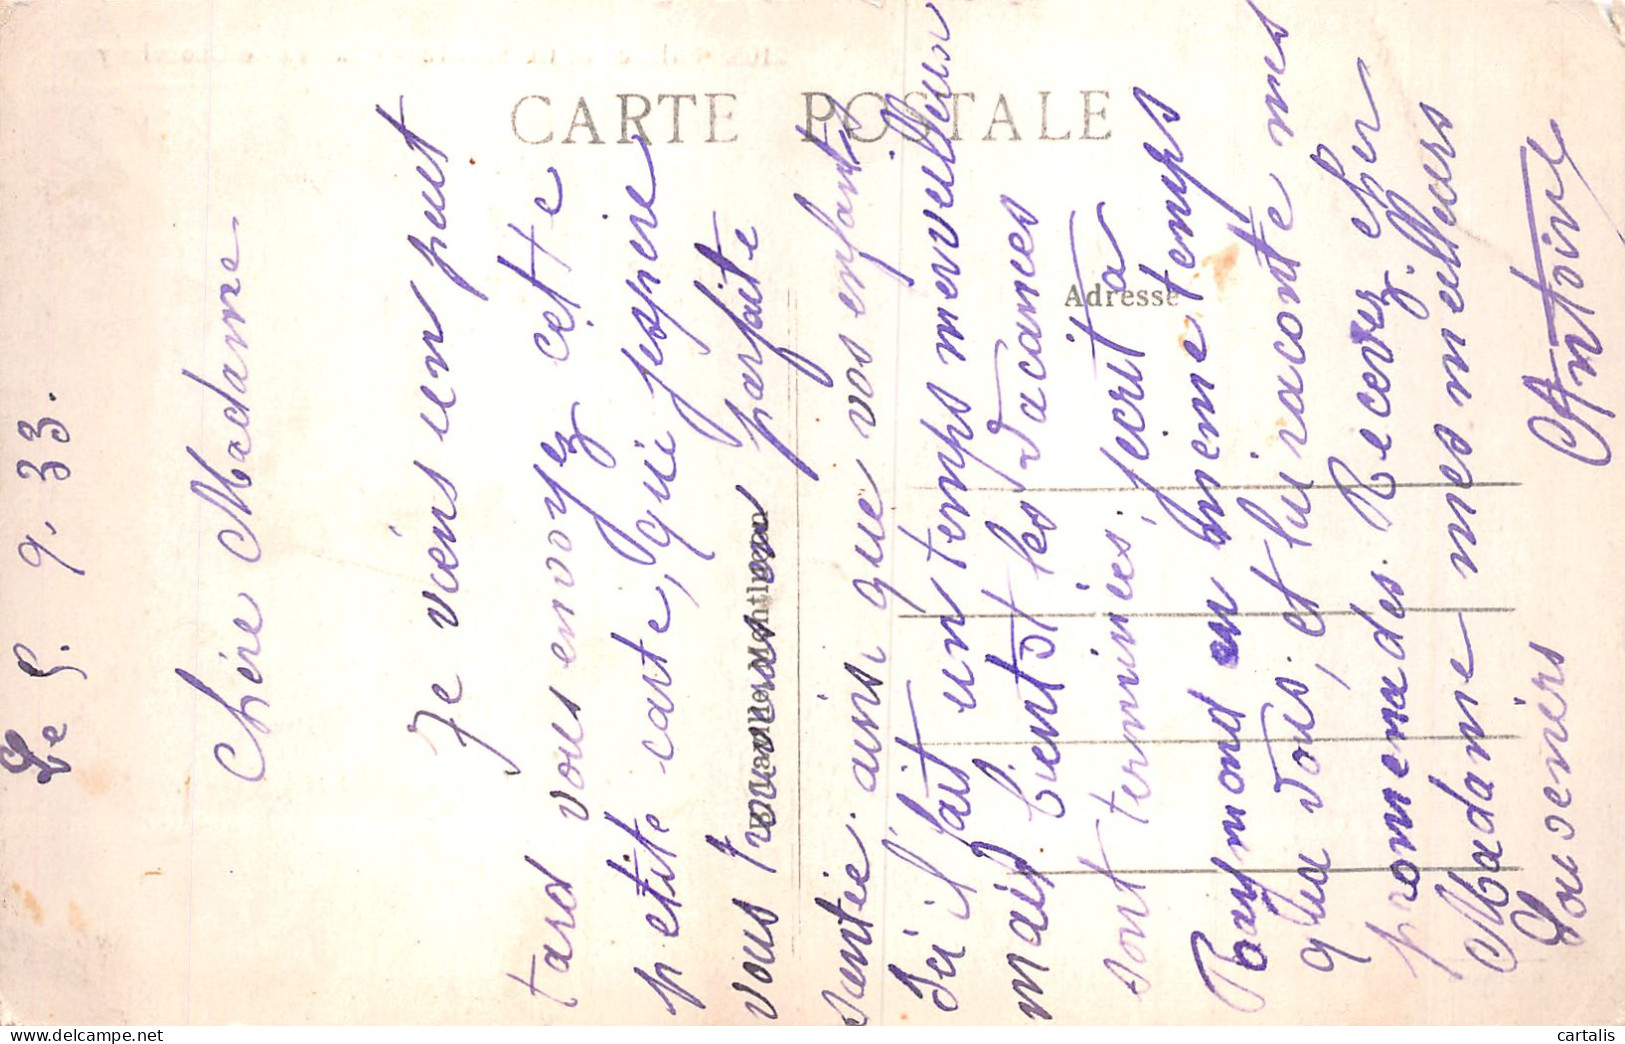 CARTE POSTALE
Adresse
Le 5. 9. 33.
Chère Madame
Je viens un peut
tard vous envoyez cette
petite carte, qui j'espère
vous trouveras en parfaite
santée. ainsi que vos enfants
Ici il fait un temps merveilleux
mais bientôt les vacances
sont terminées, j'ecrit à
Raymond en même temps
que vous, et lui raconte mes
promenades. Recevez cher
Madame mes meilleurs
Souvenirs Antoine
cartalis